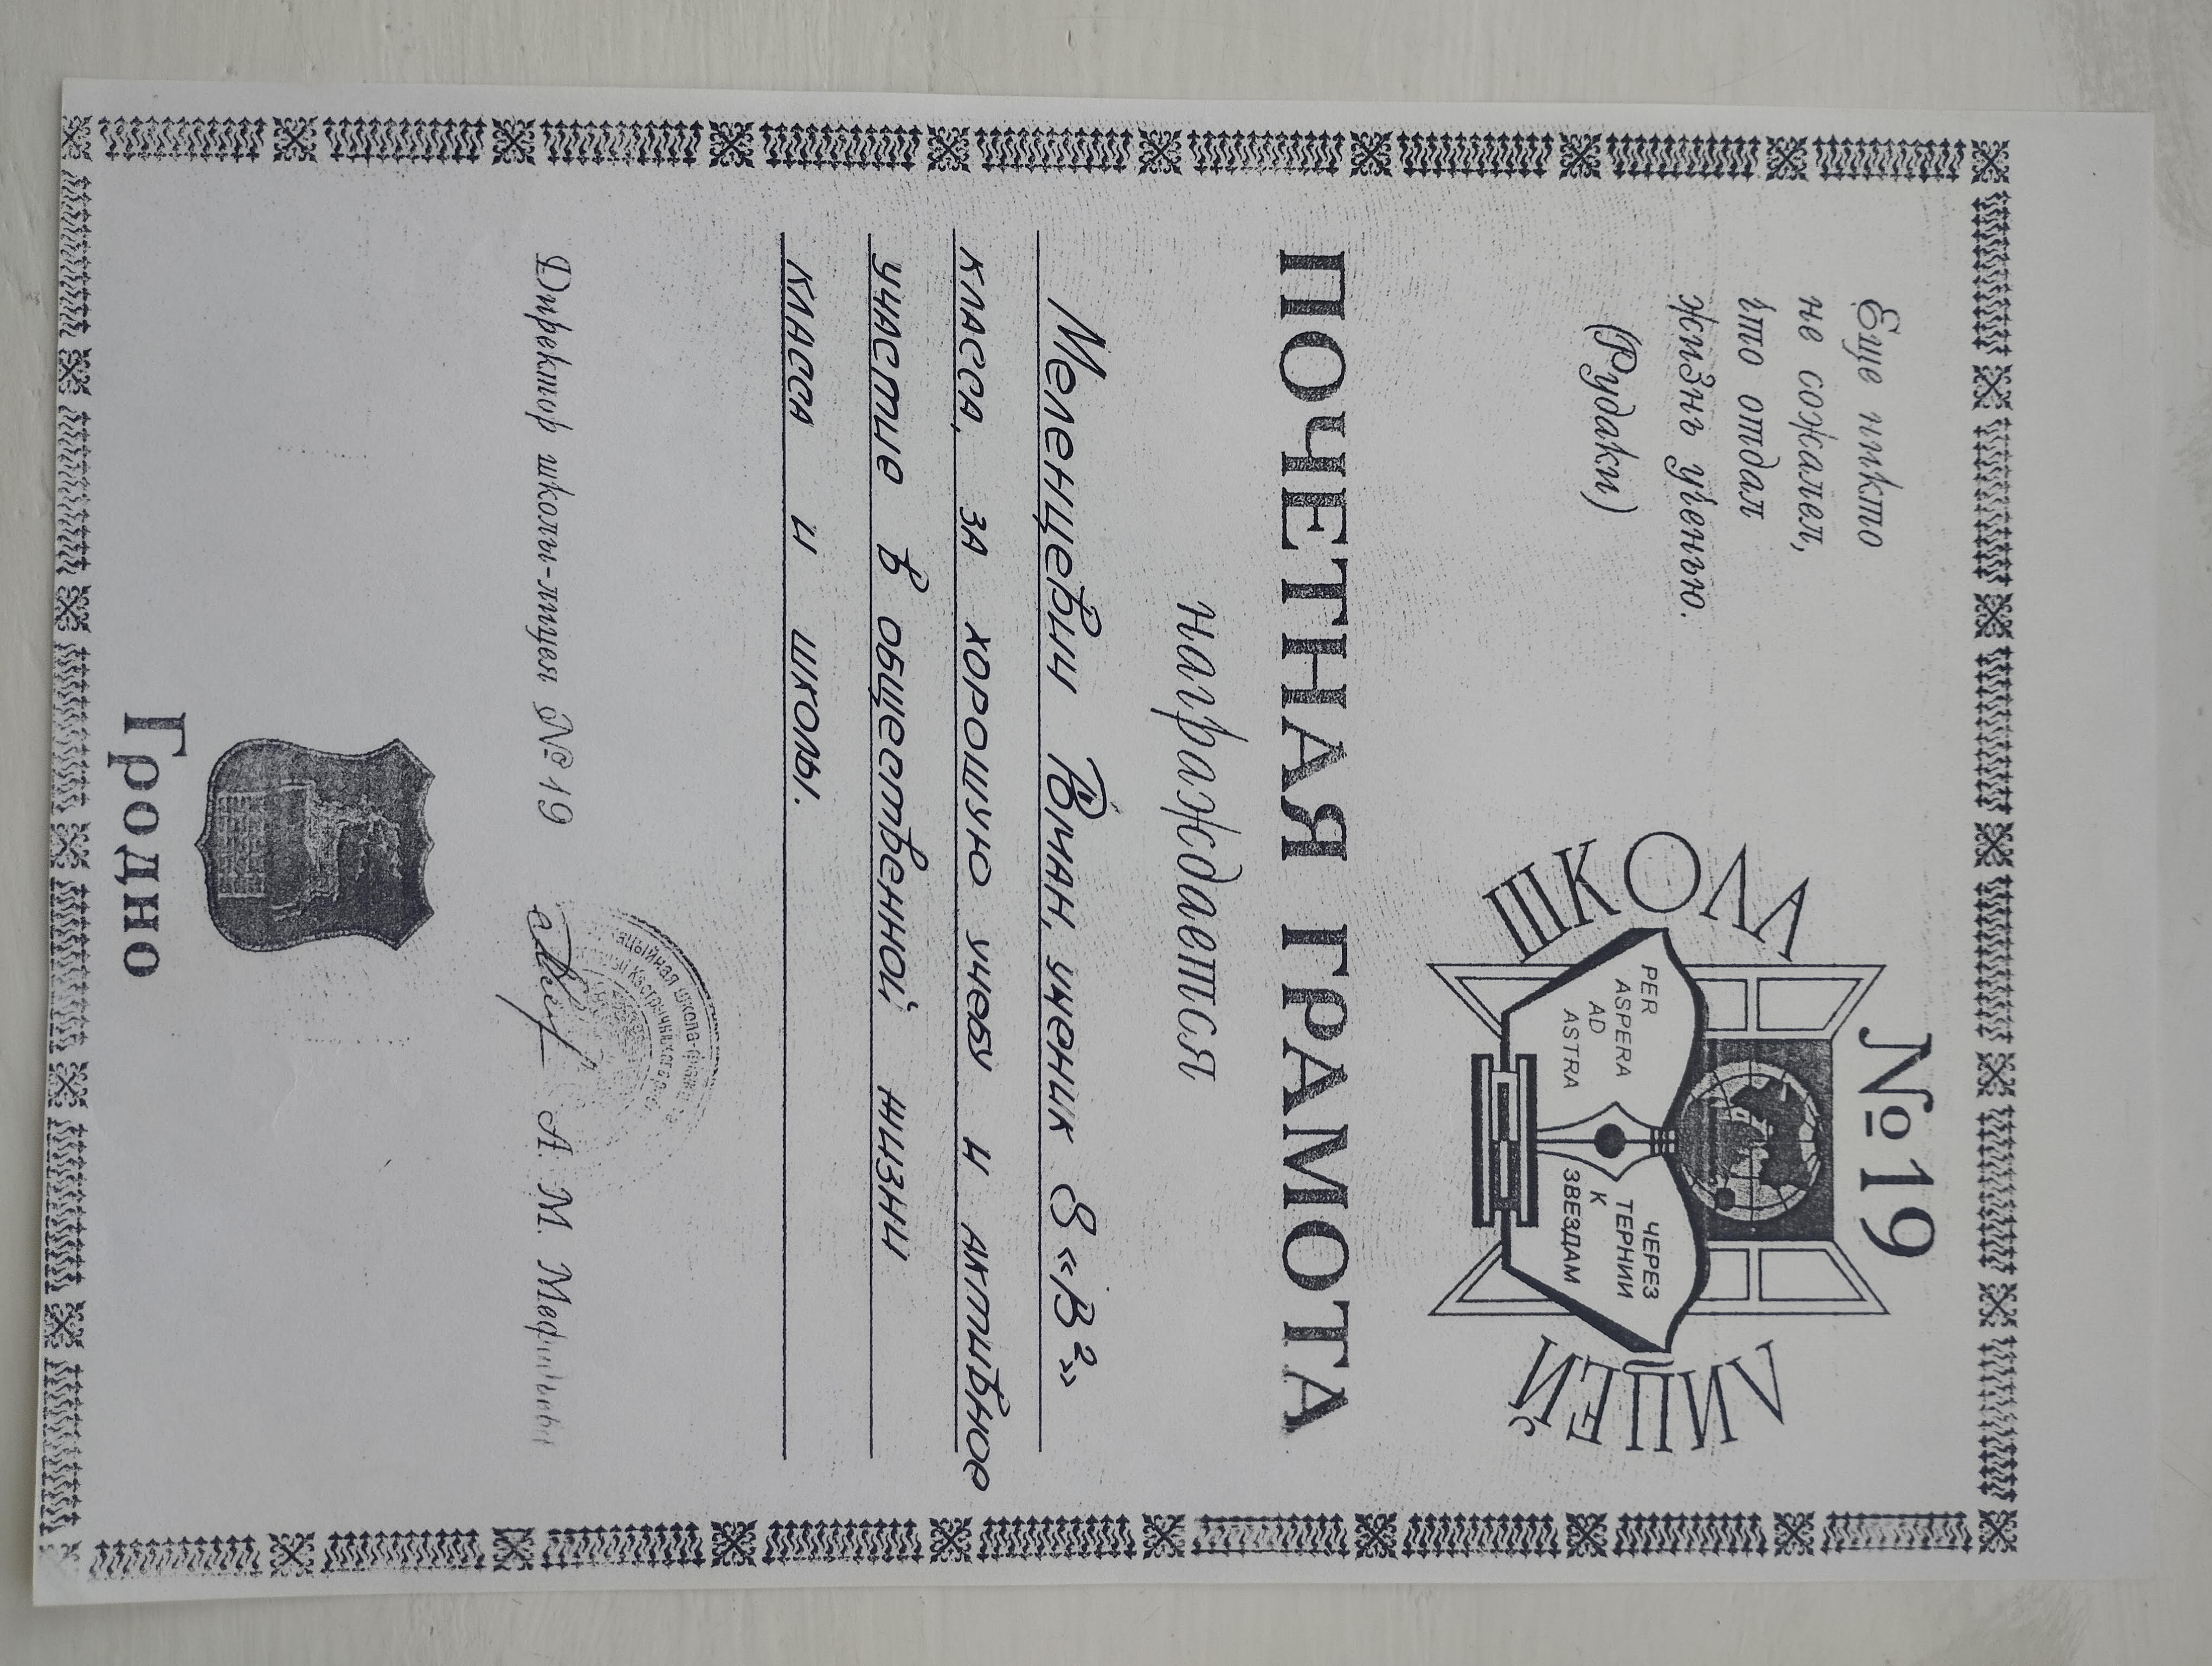 Еще никто
не сожалел,
что отдал
жизнь ученью.
(Рудаки)
№19
ШКОЛА
ЛИЦЕЙ
PER
ASPERA
AD
ASTRA
ЧЕРЕЗ
ТЕРНИИ
К
ЗВЕЗДАМ
ПОЧЕТНАЯ ГРАМОТА
награждается
Меленцевич Роман, ученик 8 «В²»
класса, за хорошую учебу и активное
участие в общественной жизни
класса и школы.
школа-
Директор школы-лицея №19
А. М.
Гродно